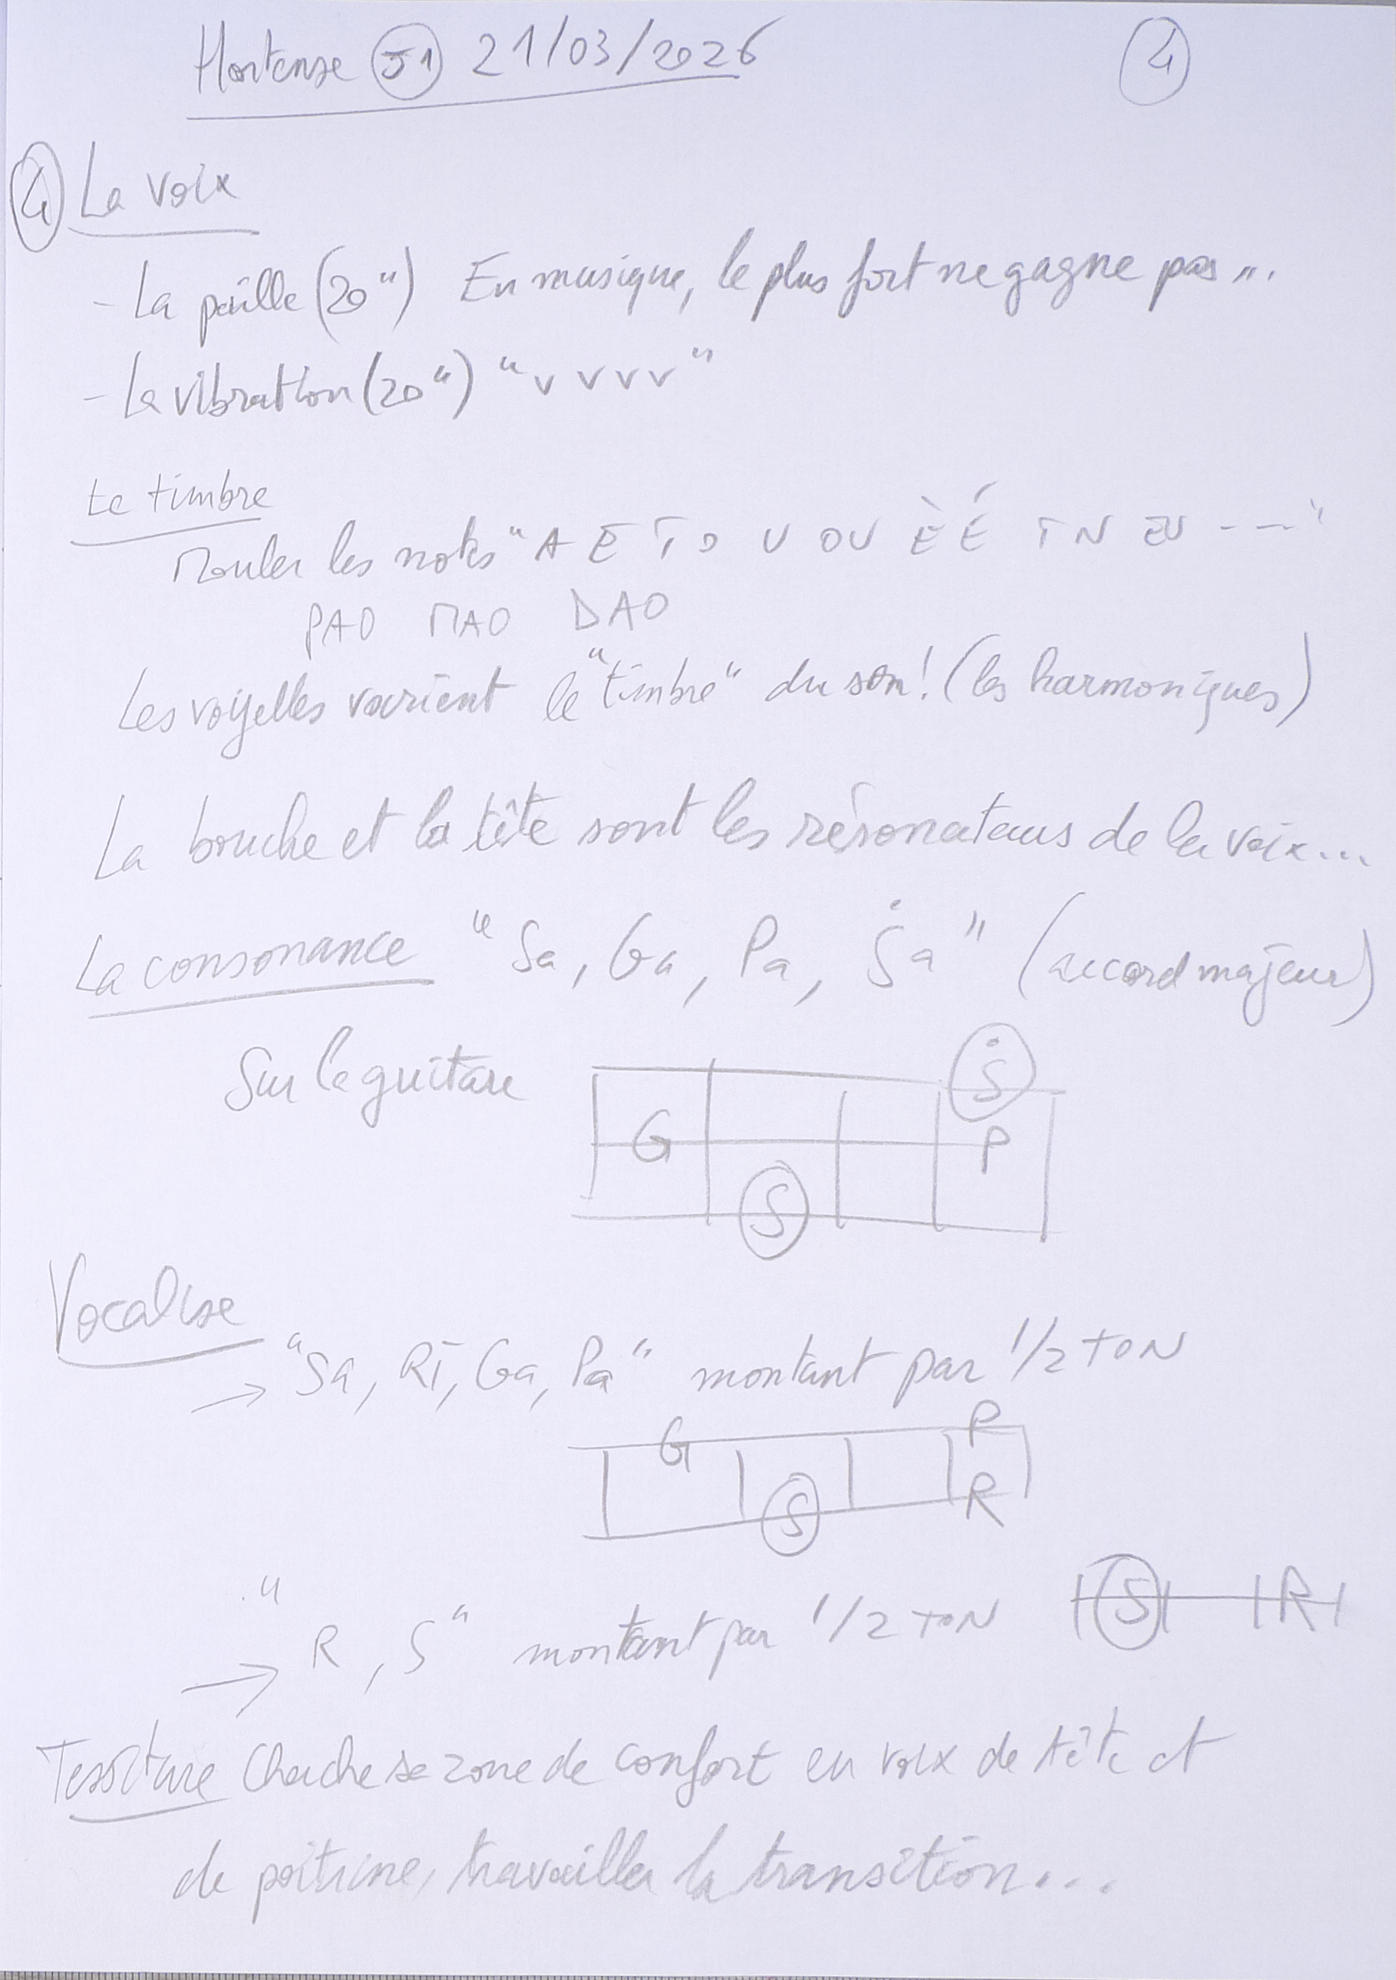 Hortense J1 21/03/2026 4
4 La voix
- La paille (20") En musique, le plus fort ne gagne pas...
- La vibration (20") "v v v v"
Le timbre
Rouler les notes "A E I O U OU È É IN EU ---"
PAO MAO DAO
Les voyelles varient le "timbre" du son! (les harmoniques)
La bouche et la tête sont les résonateurs de la voix...
La consonance "Sa, Ga, Pa, Ṡa" (accord majeur)
Sur la guitare
Ṡ
G P
S
Vocalise
→ "Sa, RI, Ga, Pa" montant par 1/2 TON
G P
S R
→ "R, S" montant par 1/2 TON S R
Tessiture Cherche sa zone de confort en voix de tête et
de poitrine, travailler la transition...